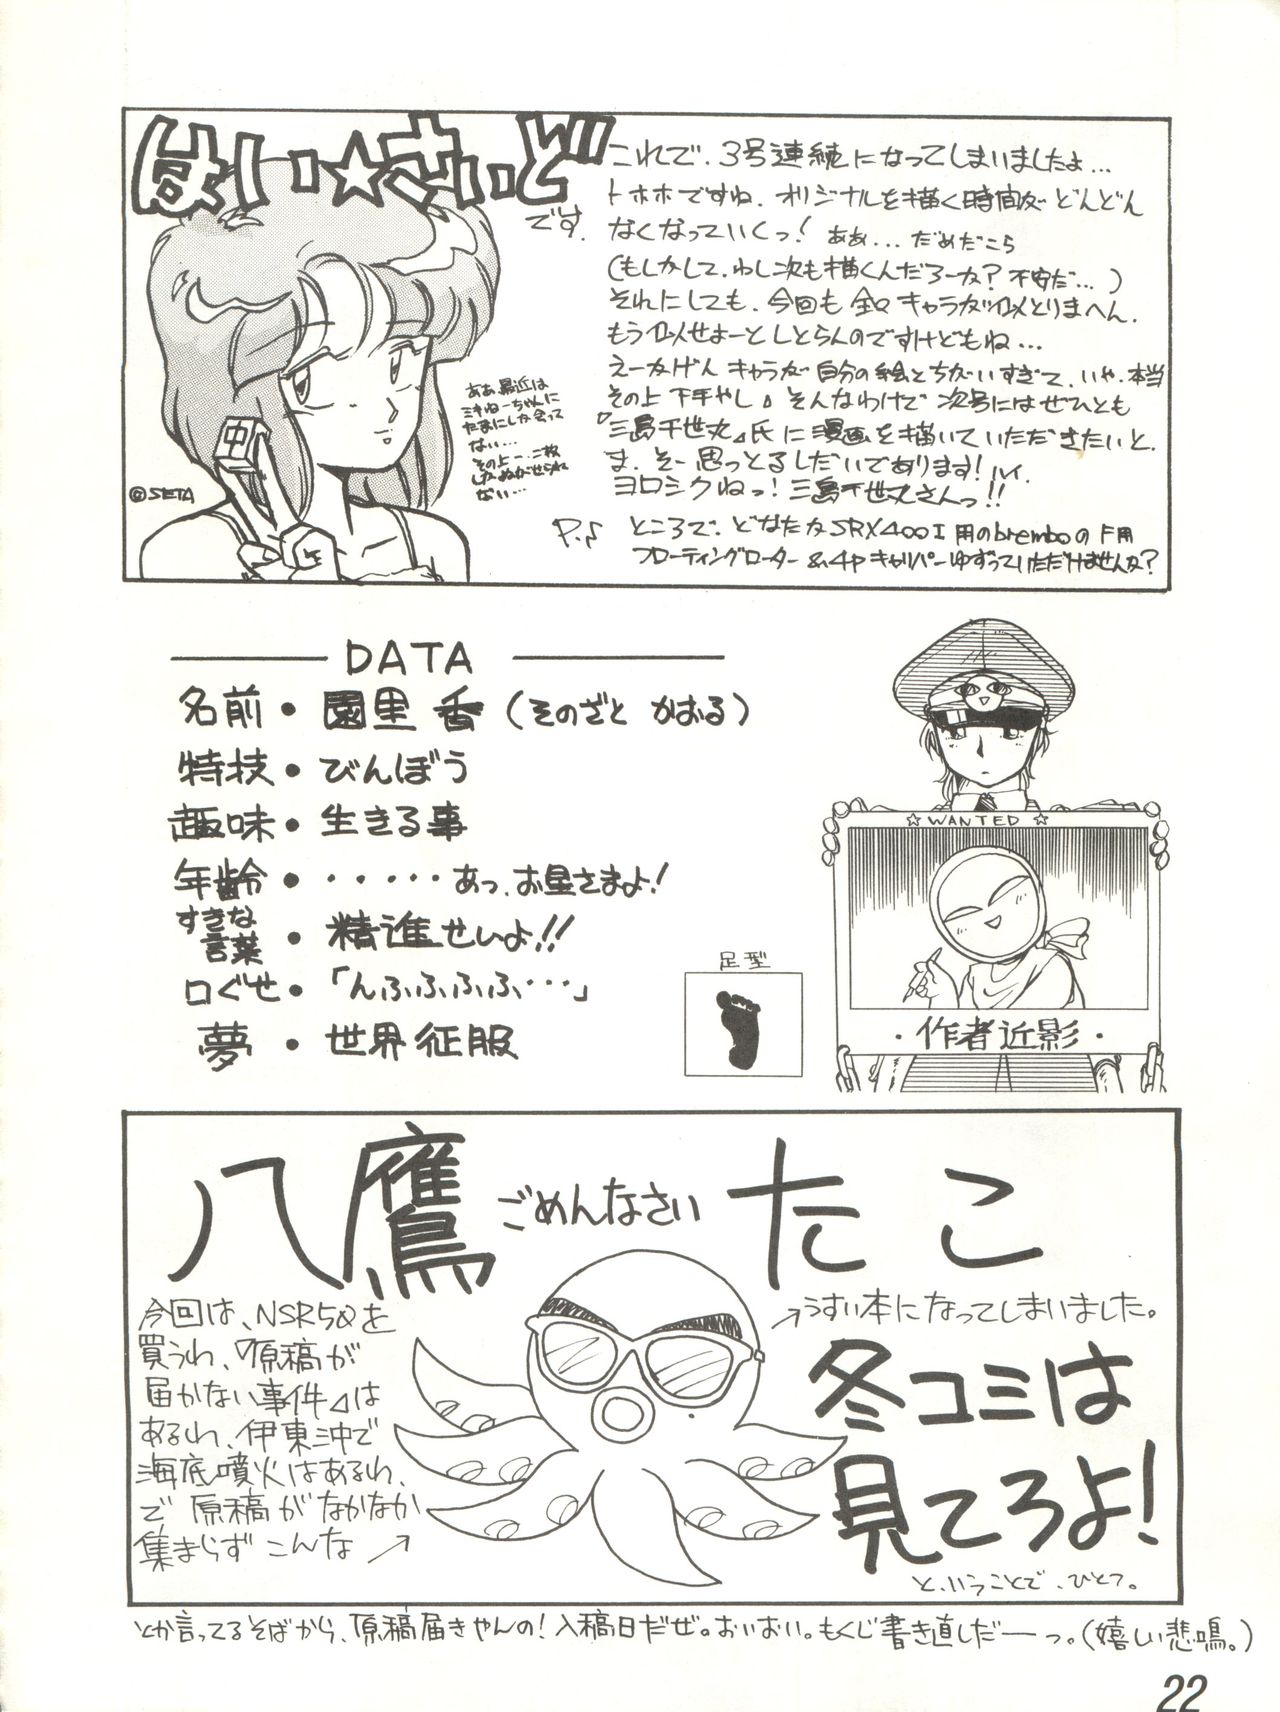 はい☆さいど
です。
これで、3号連続になってしまいましたよ…
トホホですね、オリジナルを描く時間が どんどん
なくなっていくっ! ああ… だめだこら
(もしかして、わし次も描くんだろーか? 不安だ…)
それにしても、今回も全々キャラが似とりまへん。
もう似せよーとしとらんのですけどもね…
えーかげん キャラが 自分の絵とちがいすぎて、いや、本当
その上 下手やし。そんなわけで 次号にはぜひとも
『三島千世丸』氏に漫画を描いていただきたいと、
ま、そー思っとるしだいであります!ハイ。
ヨロシクねっ!三島千世丸さんっ!!
P.S ところで、どなたか SRX400I用のbremboのF用
フローティングローター &4Pキャリパーゆずっていただけませんか?
ああ、最近は
ミキねーちゃんに
たまにしか会って
ない…
その上一、二枚
しかぬがせられ
ない…
中
©SETA
DATA
名前・園里 香(そのざと かおる)
特技・びんぼう
趣味・生きる事
年齢・・・・・・あっ、お星さまよ!
すきな言葉・精進せいよ!!
口ぐせ・「んふふふふ・・・」
夢・世界征服
足型
☆WANTED☆
・作者近影・
八鷹 ごめんなさい たこ
今回は、NSR50を
買うわ、『原稿が
届かない事件』は
あるわ、伊東沖で
海底噴火はあるわ、
で 原稿がなかなか
集まらず こんな
うすい本になってしまいました。
冬コミは
見てろよ!
と、いうことで、ひとつ。
とか言ってるそばから、原稿届きやんの!入稿日だぜ。おいおい。もくじ書き直しだーっ。(嬉しい悲鳴。)
22